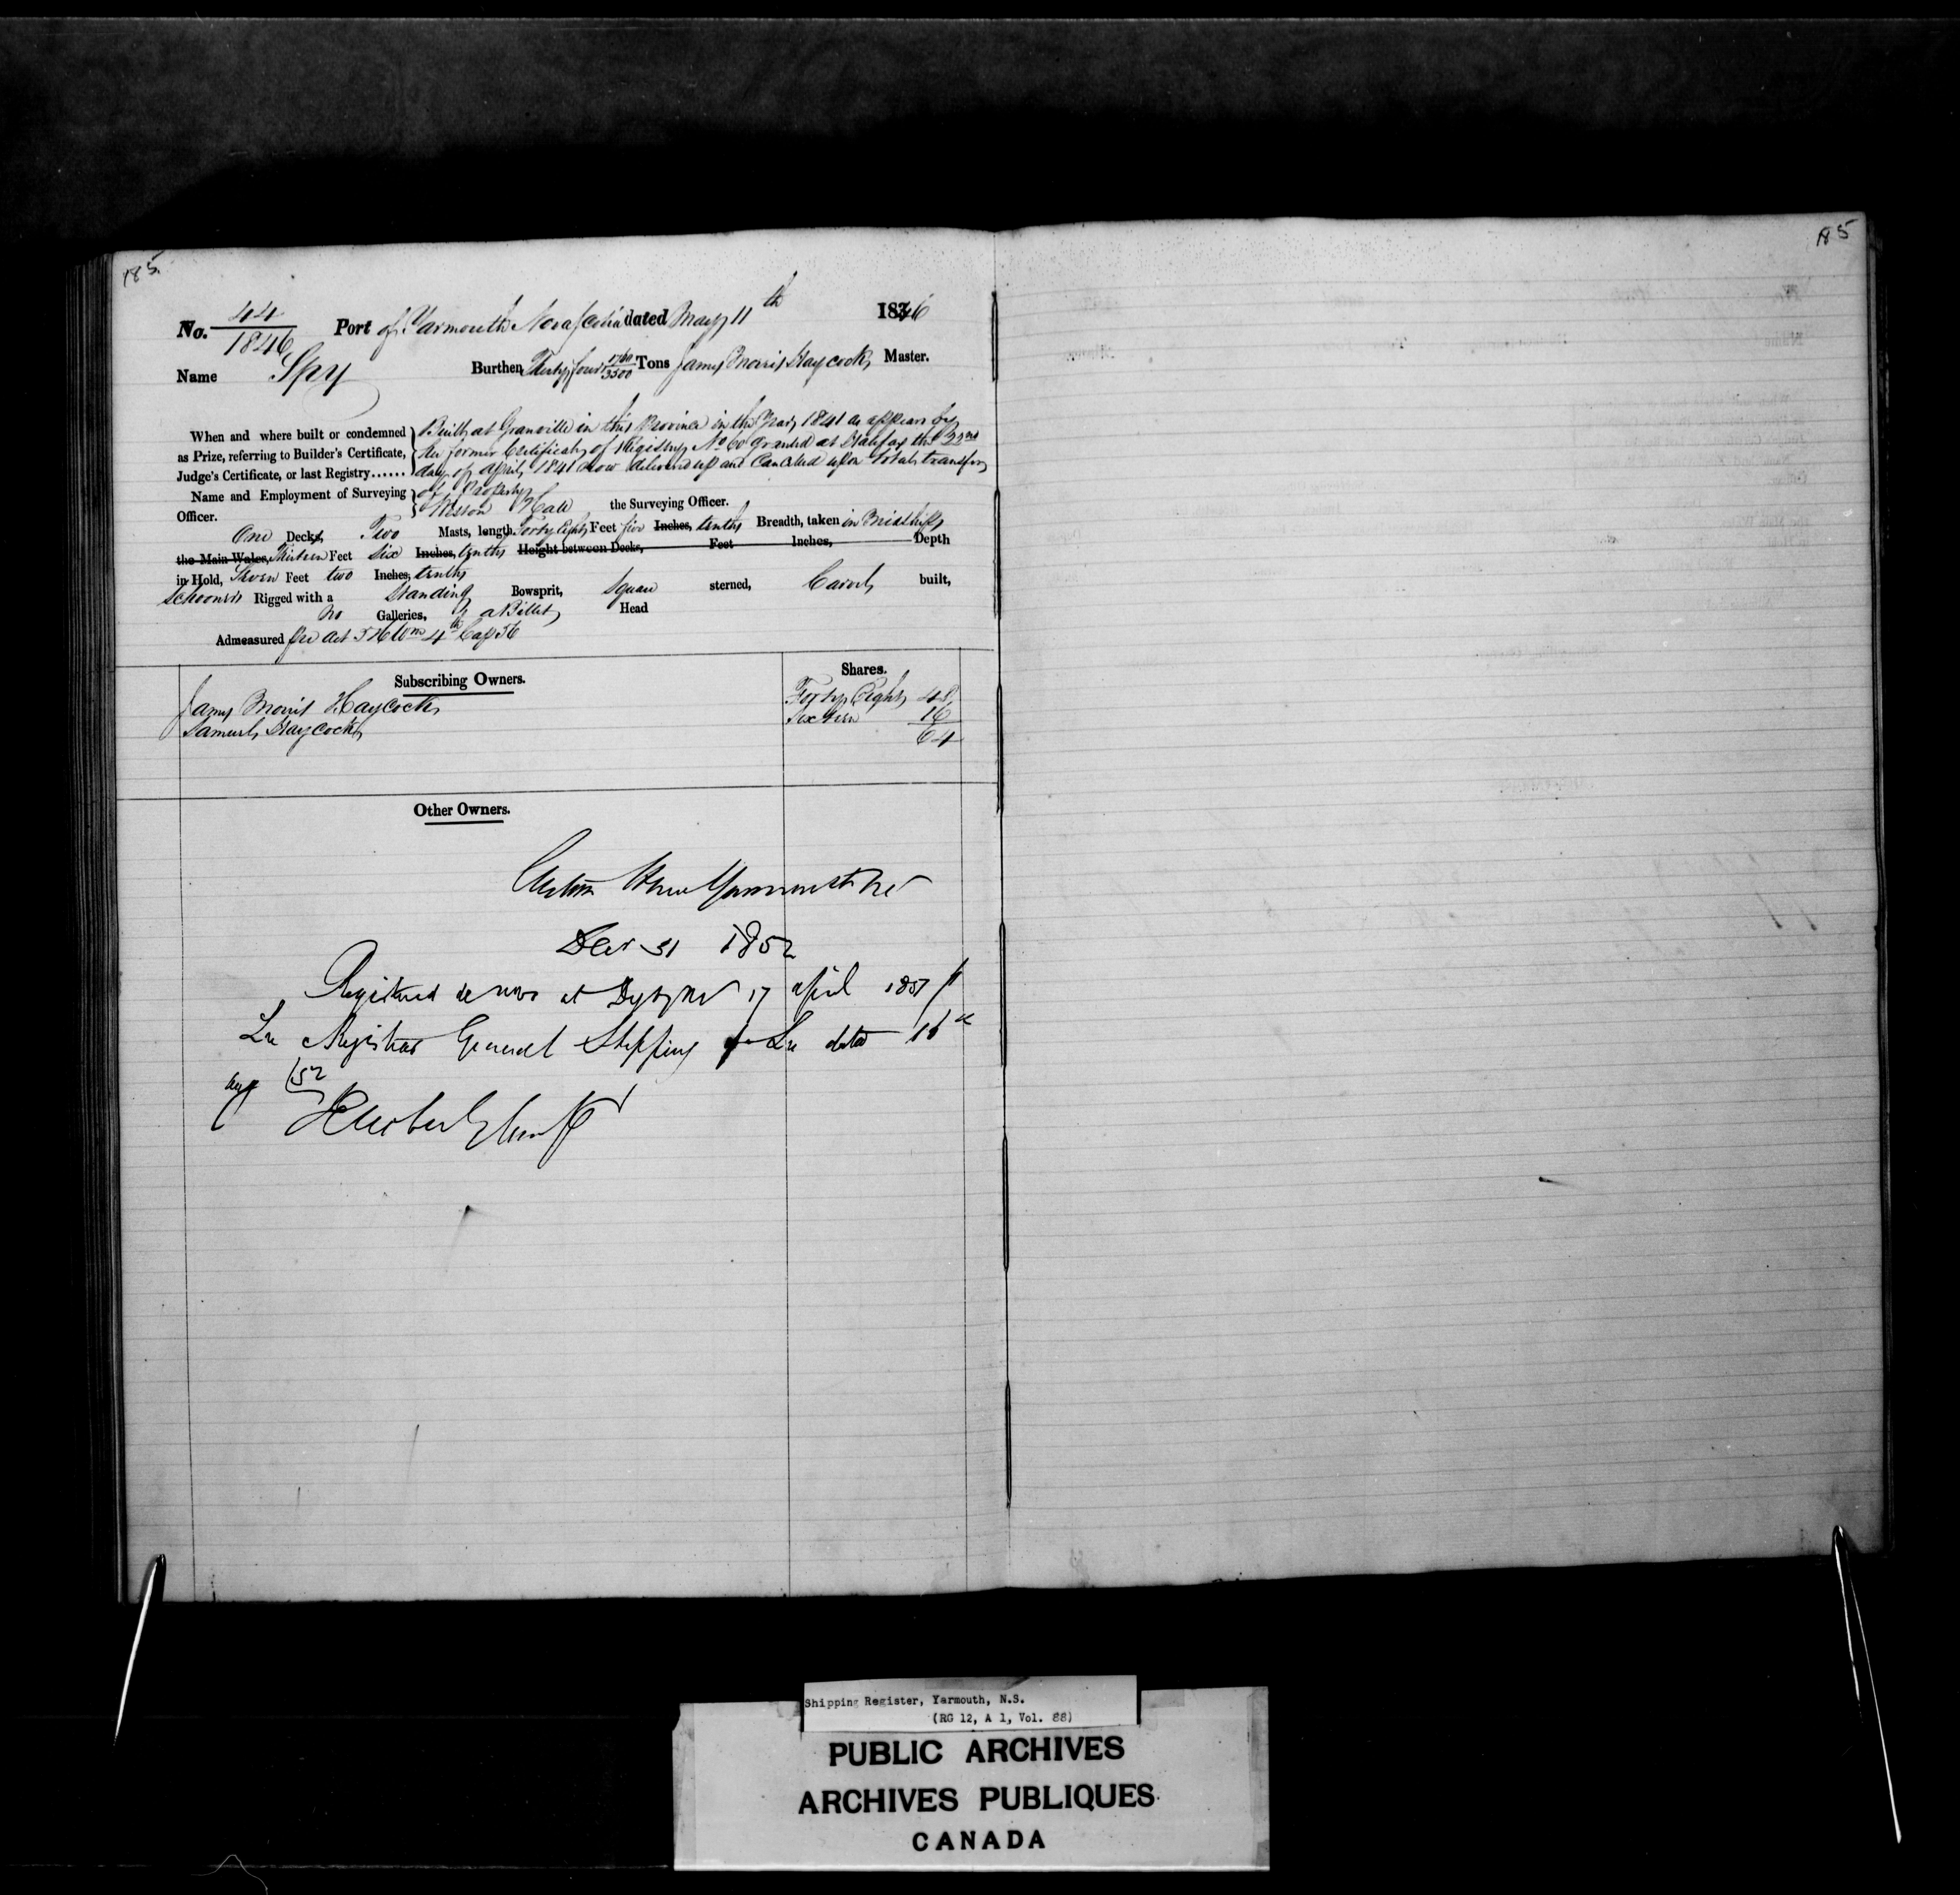 185
185
No. 44/1846 Port of Yarmouth Nova Scotia dated May 11th 1846
Name Spy Burthen Thirty four 1760/3500 Tons James Morris Haycock Master.
When and where built or condemned as Prize, referring to Builder's Certificate, Judge's Certificate, or last Registry......
Built at Granville in this Province in the Year 1841 as appears by
her former Certificate of Registry No 60 granted at Halifax the 22nd
day of April 1841 now delivered up and Cancelled upon total transfer
of Property
Name and Employment of Surveying Officer. Hall the Surveying Officer.
One Decks, Two Masts, length Forty Eight Feet five Inches, tenths Breadth, taken in Midships
the Main Wales, Thirteen Feet Six Inches, tenths Height between Decks, Feet Inches, Depth
in Hold, Seven Feet two Inches, tenths
Schooner Rigged with a Standing Bowsprit, Square sterned, Carvel built,
No Galleries, & a Billet Head
Admeasured per Act 5 & 6 Wm 4th Cap 56
Subscribing Owners. Shares.
James Morris Haycock Forty Eight 48
Samuel Haycock Sixteen 16
64
Other Owners.
Custom House Yarmouth NS
Decr 31 1852
Registered de novo at Digby NS 17 April 1851 p
Lre Registrar General Shipping Lre dated 16th
Aug /52
Shipping Register, Yarmouth, N.S.
(RG 12, A 1, Vol. 88)
PUBLIC ARCHIVES
ARCHIVES PUBLIQUES
CANADA